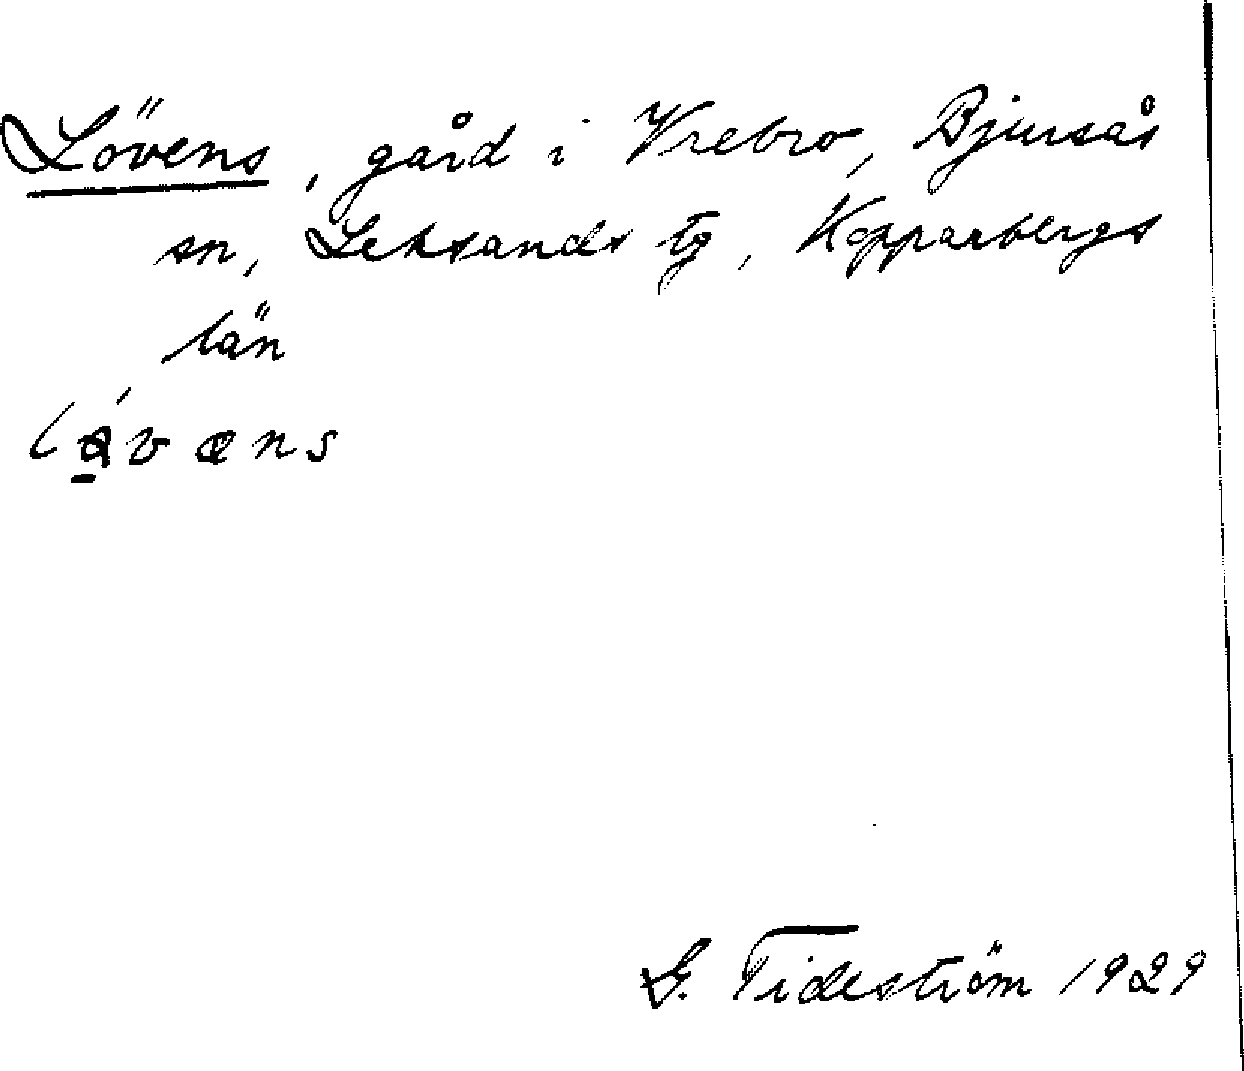 Lövens, gård i Vrebro, Bjursås
sn, Leksands tg, Kopparbergs
län
G. Tideström 1929